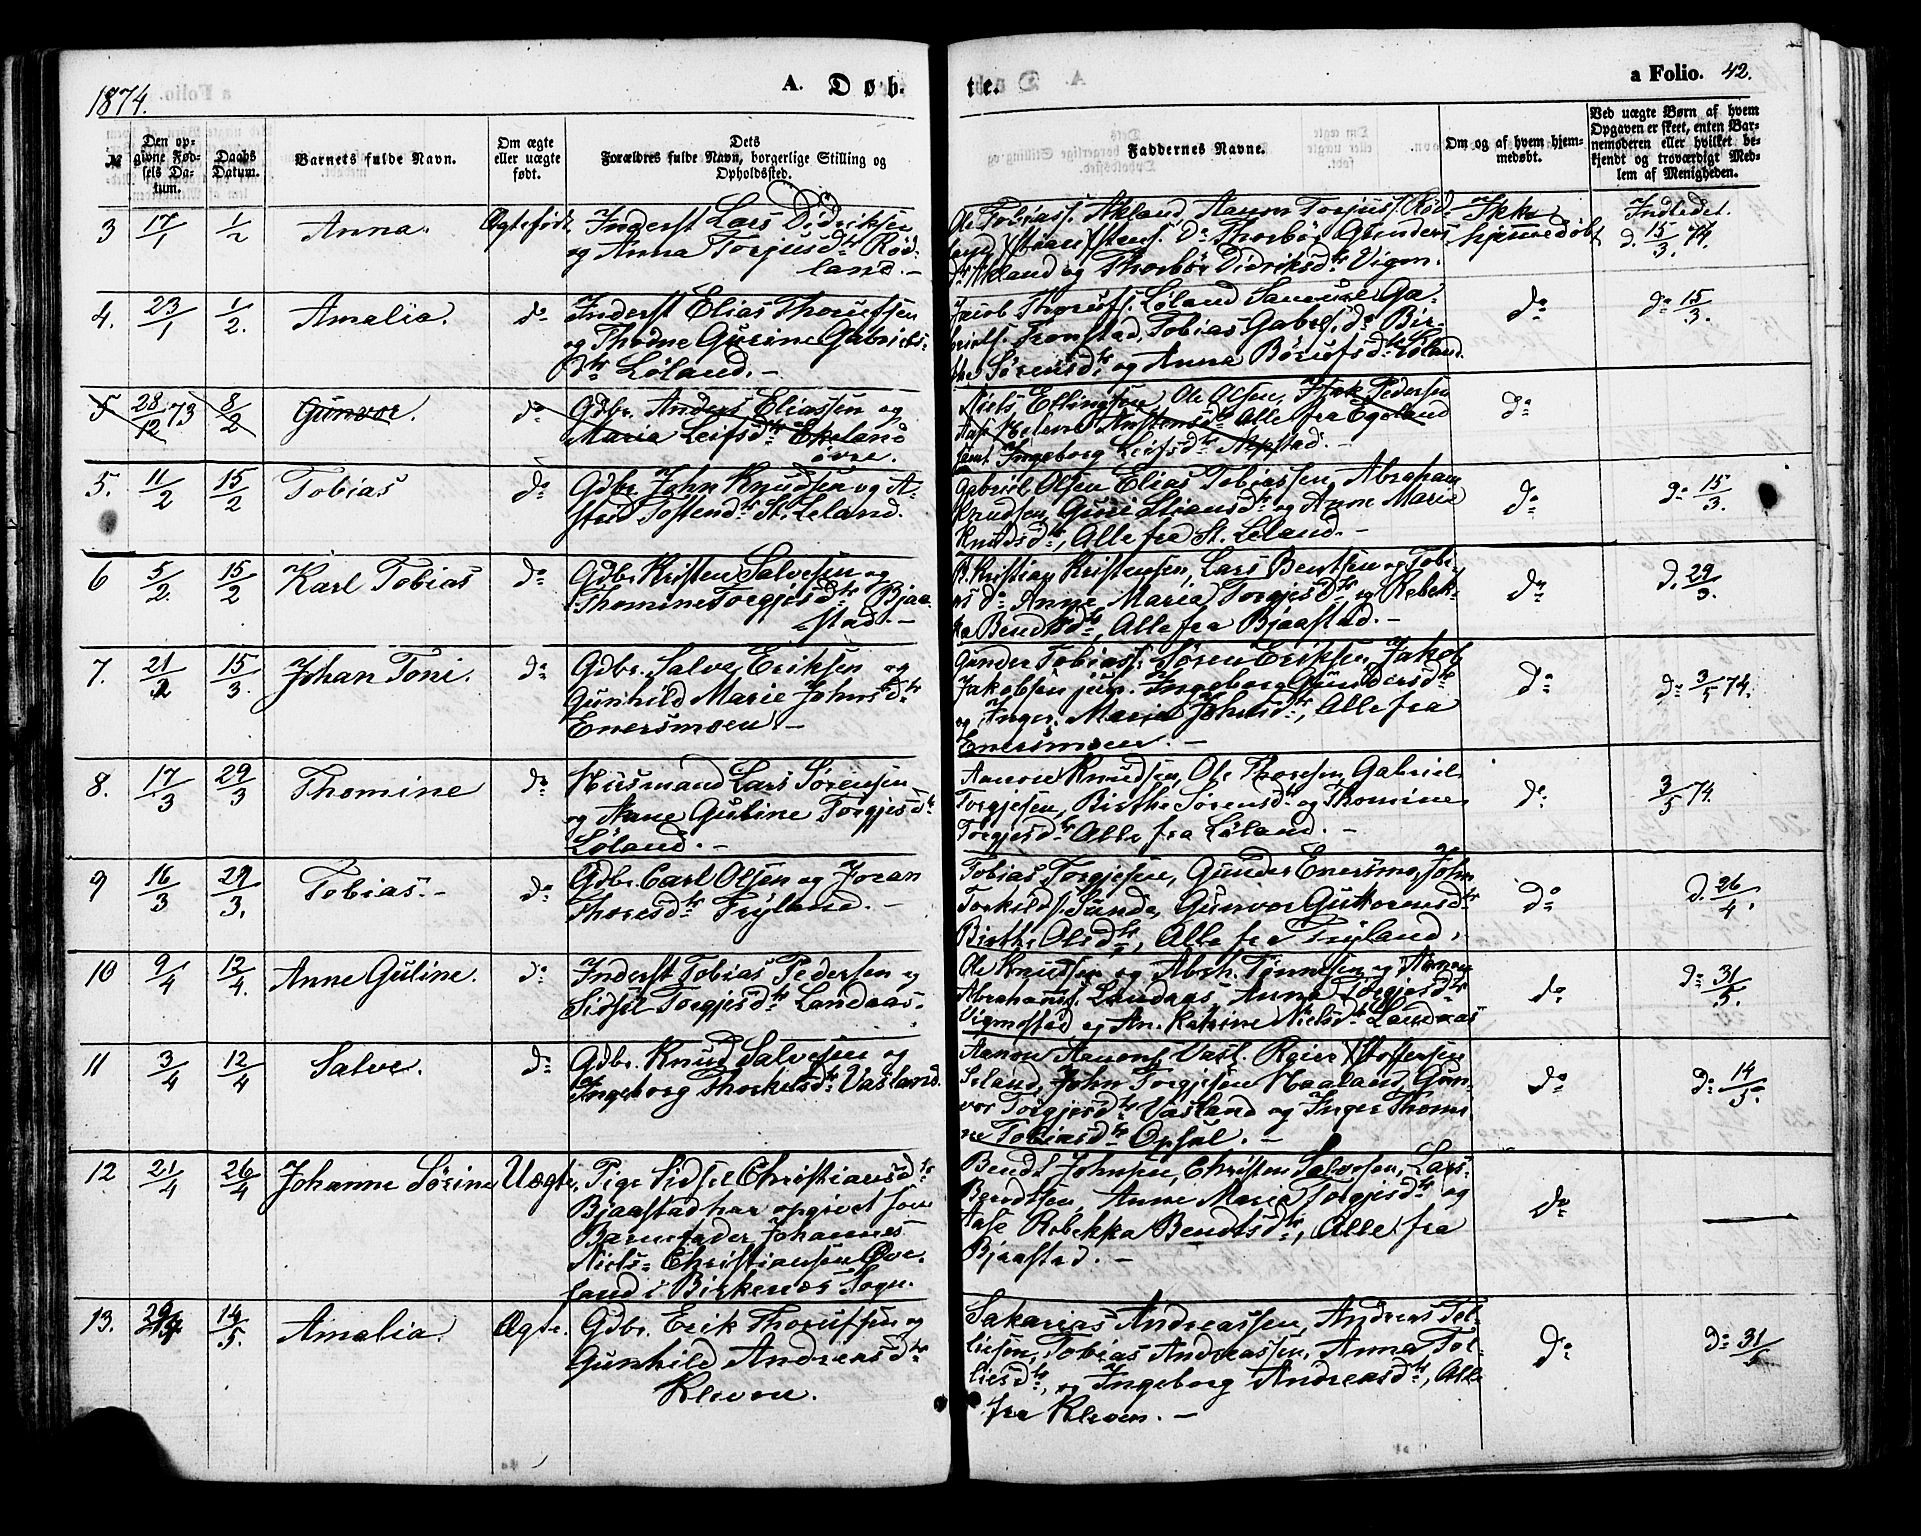 1874.
A. Døb-
te.
a Folio. 42.
№
Den op-
givne Fød-
sels Da-
tum.
Daabs
Datum.
Barnets fulde Navn.
Om ægte
eller uægte
født.
Dets
Forældres fulde Navn, borgerlige Stilling og
Opholdssted.
Faddernes Navne.
Om og af hvem hjem-
medøbt.
Ved uægte Børn af hvem
Opgaven er skeet, enten Bar-
nemoderen eller hvilket be-
kjendt og troværdigt Med-
lem af Menigheden.
3 17/1 1/2 Anna. Ægtefødt
Inderst Lars Didriksen
og Anna Torjusdtr Rød-
land.-
Ole Tobiass. Akland, Aanon Torjuss. Rød-
land, Staan Do Thorbør Gunders-
dtr Akland og Thorbør Didriksdtr Vigm.
Ikke
hjemmedøbt
Indledet.
d. 15/3 74.
4. 23/1 1/2. Amalia. do
Inderst Elias Thorufsen
og Thodne Gurine Gabriels-
dtr Løland.-
Jacob Thorufs. Løland, Samuel Ga-
briels. Tronstad, Tobias Gabrs. do Bir-
the Sørensdtr og Anna Børufsdtr Løland.
do
do 15/3.
5 28/12 73 8/2 Gunvor. do
Gdbr. Anders Eliassen og
Maria Leifsdtr Ekeland
øvre.
Niels Ellingsen, Ole Olsen, Isak Pedersen
Aase Helene Austensdtr Alle fra Egeland
samt Ingeborg Leifsdtr Neystad.-
do
5. 11/2 15/2 Tobias do
Gdbr. John Knudsen og A-
stad Tostendtr St. Leland.
Gabriel Olsen, Elias Tobiassen, Abraham
Knudsen, Guri Stiansdtr og Anne Marie
Knudsdtr, Alle fra St. Leland.-
do
do 15/3.
6 5/2. 15/2 Karl Tobias do
Gdbr. Kristen Salvesen og
Thomine Torgjesdtr Bjaa-
stad.-
B. Kristian Kristensen, Lars Bentsen og Tobi-
as do Anne Maria Torgjesdtr og Rebek-
ka Bendtsdtr, Alle fra Bjaastad.-
do
d. 29/3.
7. 21/2 15/3. Johan Toni. do
Gdbr. Salve Eriksen og
Gunhild Marie Johnsdtr
Enersmoen-
Gunder Tobiass. Søren Eriksen, Jakob
Jakobsen jun. Ingeborg Gundersdtr
og Inger Maria Johnsdtr, Alle fra
Enersmoen.-
do
do 3/5 74.
8. 17/3 29/3 Thomine do
Husmand Lars Sørensen
og Anne Guline Torgjesdtr
Løland.-
Aanon Knudsen, Ole Thoresen, Gabriel
Torgjesen, Birthe Sørensdtr og Thomine
Torgjesdtr Alle fra Løland.-
do
3/5 74.
9 16/3 29/3. Tobias.- do
Gdbr. Carl Olsen og Joran
Thoresdtr Fryland.-
Tobias Torgjesen, Gunder Enersmo, John
Torkilds. Sunde, Gunvor Guttormsdtr
Birthe Olsdtr, Alle fra Fryland.
do
d. 26/4.
10 9/4 12/4. Anne Guline. do
Inderst Tobias Pedersen og
Sidsel Torgjesdtr Landaas.
Ole Knudsen og Abrh. Tønnesen og Aanon
Abrahams. Landaas, Anna Torgjesdtr
Vigmostad og An. Katrine Nielsdtr Landaas
do
do 31/5.
11 3/4 12/4 Salve. do
Gdbr. Knud Salvesen og
Ingeborg Thorkelsdtr Vasland.
Aanon Aanons. Vasl. Reier
Leland, John Torgjesen Haaland, Gun-
vor Torgjesdtr Vasland og Inger Thomi-
ne Tobiasdtr Opsal.-
do
do 14/5.
12 21/4 26/4 Johanne Sørine Uægte.
Pige Sidsel Christiansdtr
Bjaastad har opgivet som
Barnefader Johannes
Niels- Christiansen Øve-
land i Birkenæs Sogn.
Bendt Johnsen, Christen Salvesen, Lars
Bendtsen, Anne Maria Torgjesdtr og
Aase Rebekka Bendtsdtr, Alle fra
Bjaastad.-
do
13. 14/5 Amalia. Ægte.
Gdbr. Erik Thorufsen og
Gunhild Andreasdtr
Kleven.
Sakarias Andreassen, Andreas Tol-
liesen, Tobias Andreassen, Anna Tol-
liesdtr, og Ingeborg Andreasdtr, Alle
fra Kleven.-
do
do 31/5